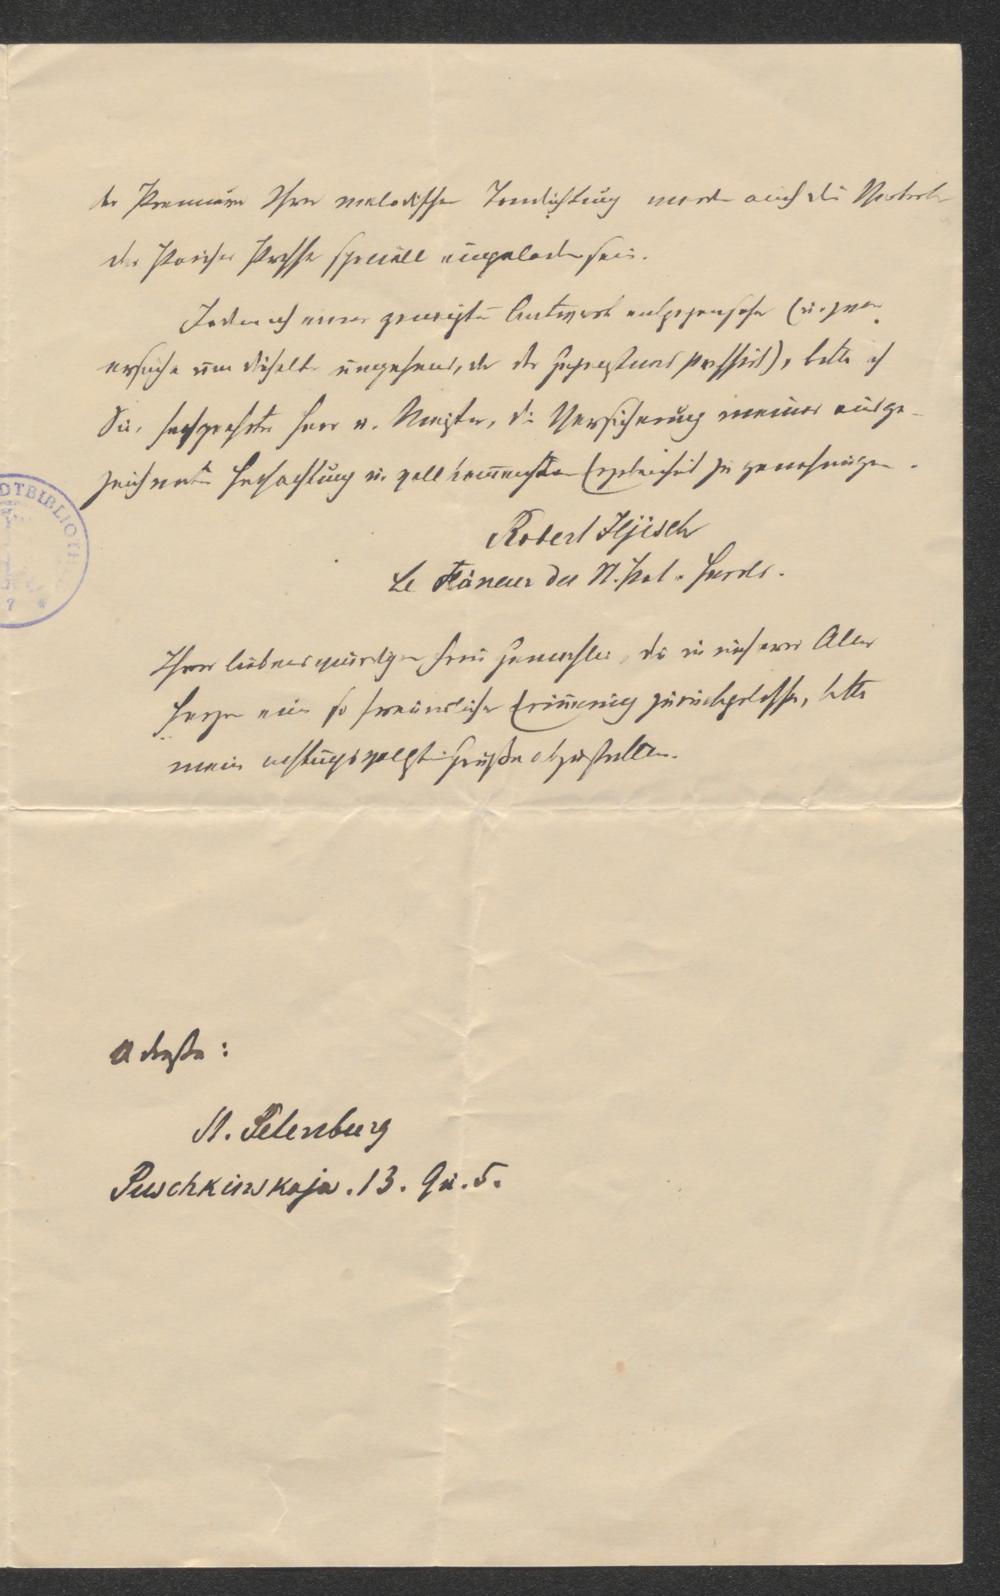 der Premiere Ihrer melodischen Tondichtung werden auch die Vertreter
der Pariser Presse speciell eingeladen sein.
Indem ich einer geneigten Antwort entgegensehe (u. zwar
ersuche um dieselbe umgehend, da die pressirt), bitte ich
Sie, hochgeehrter Herr v. , die Versicherung meiner ausge-
zeichneten Hochachtung u. vollkommensten Ergebenheit zu genehmigen.
Robert Iljisch
Le Flâneur des St. Pet. Herold.
Ihrer liebenswürdigen Frau Gemahlin, die in unser Aller
Herzen eine so freundliche Erinnerung zurückgelassen, bitte
meine achtungsvollsten Grüße abzustatten.
Adresse:
St. Petersburg
Puschkinskaja. 13. Qu. 5.
DTBIBLIOTH